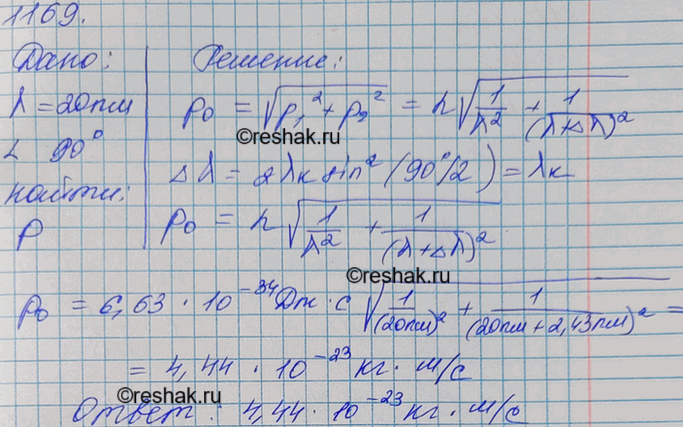 1169.
Дано: Решение:
λ = 20пм p₀ = √(p₁² + p₂²) = h√(1/λ² + 1/(λ+Δλ)²)
©reshak.ru
∠ 90° Δλ = 2λк sin² (90°/2) = λк
найти:
p p₀ = h√(1/λ² + 1/(λ+Δλ)²)
©reshak.ru
p₀ = 6,63 · 10⁻³⁴ Дж · с √(1/(20пм)² + 1/(20пм + 2,43пм)²) =
= 4,44 · 10⁻²³ кг · м/с
©reshak.ru
Ответ: 4,44 · 10⁻²³ кг · м/с